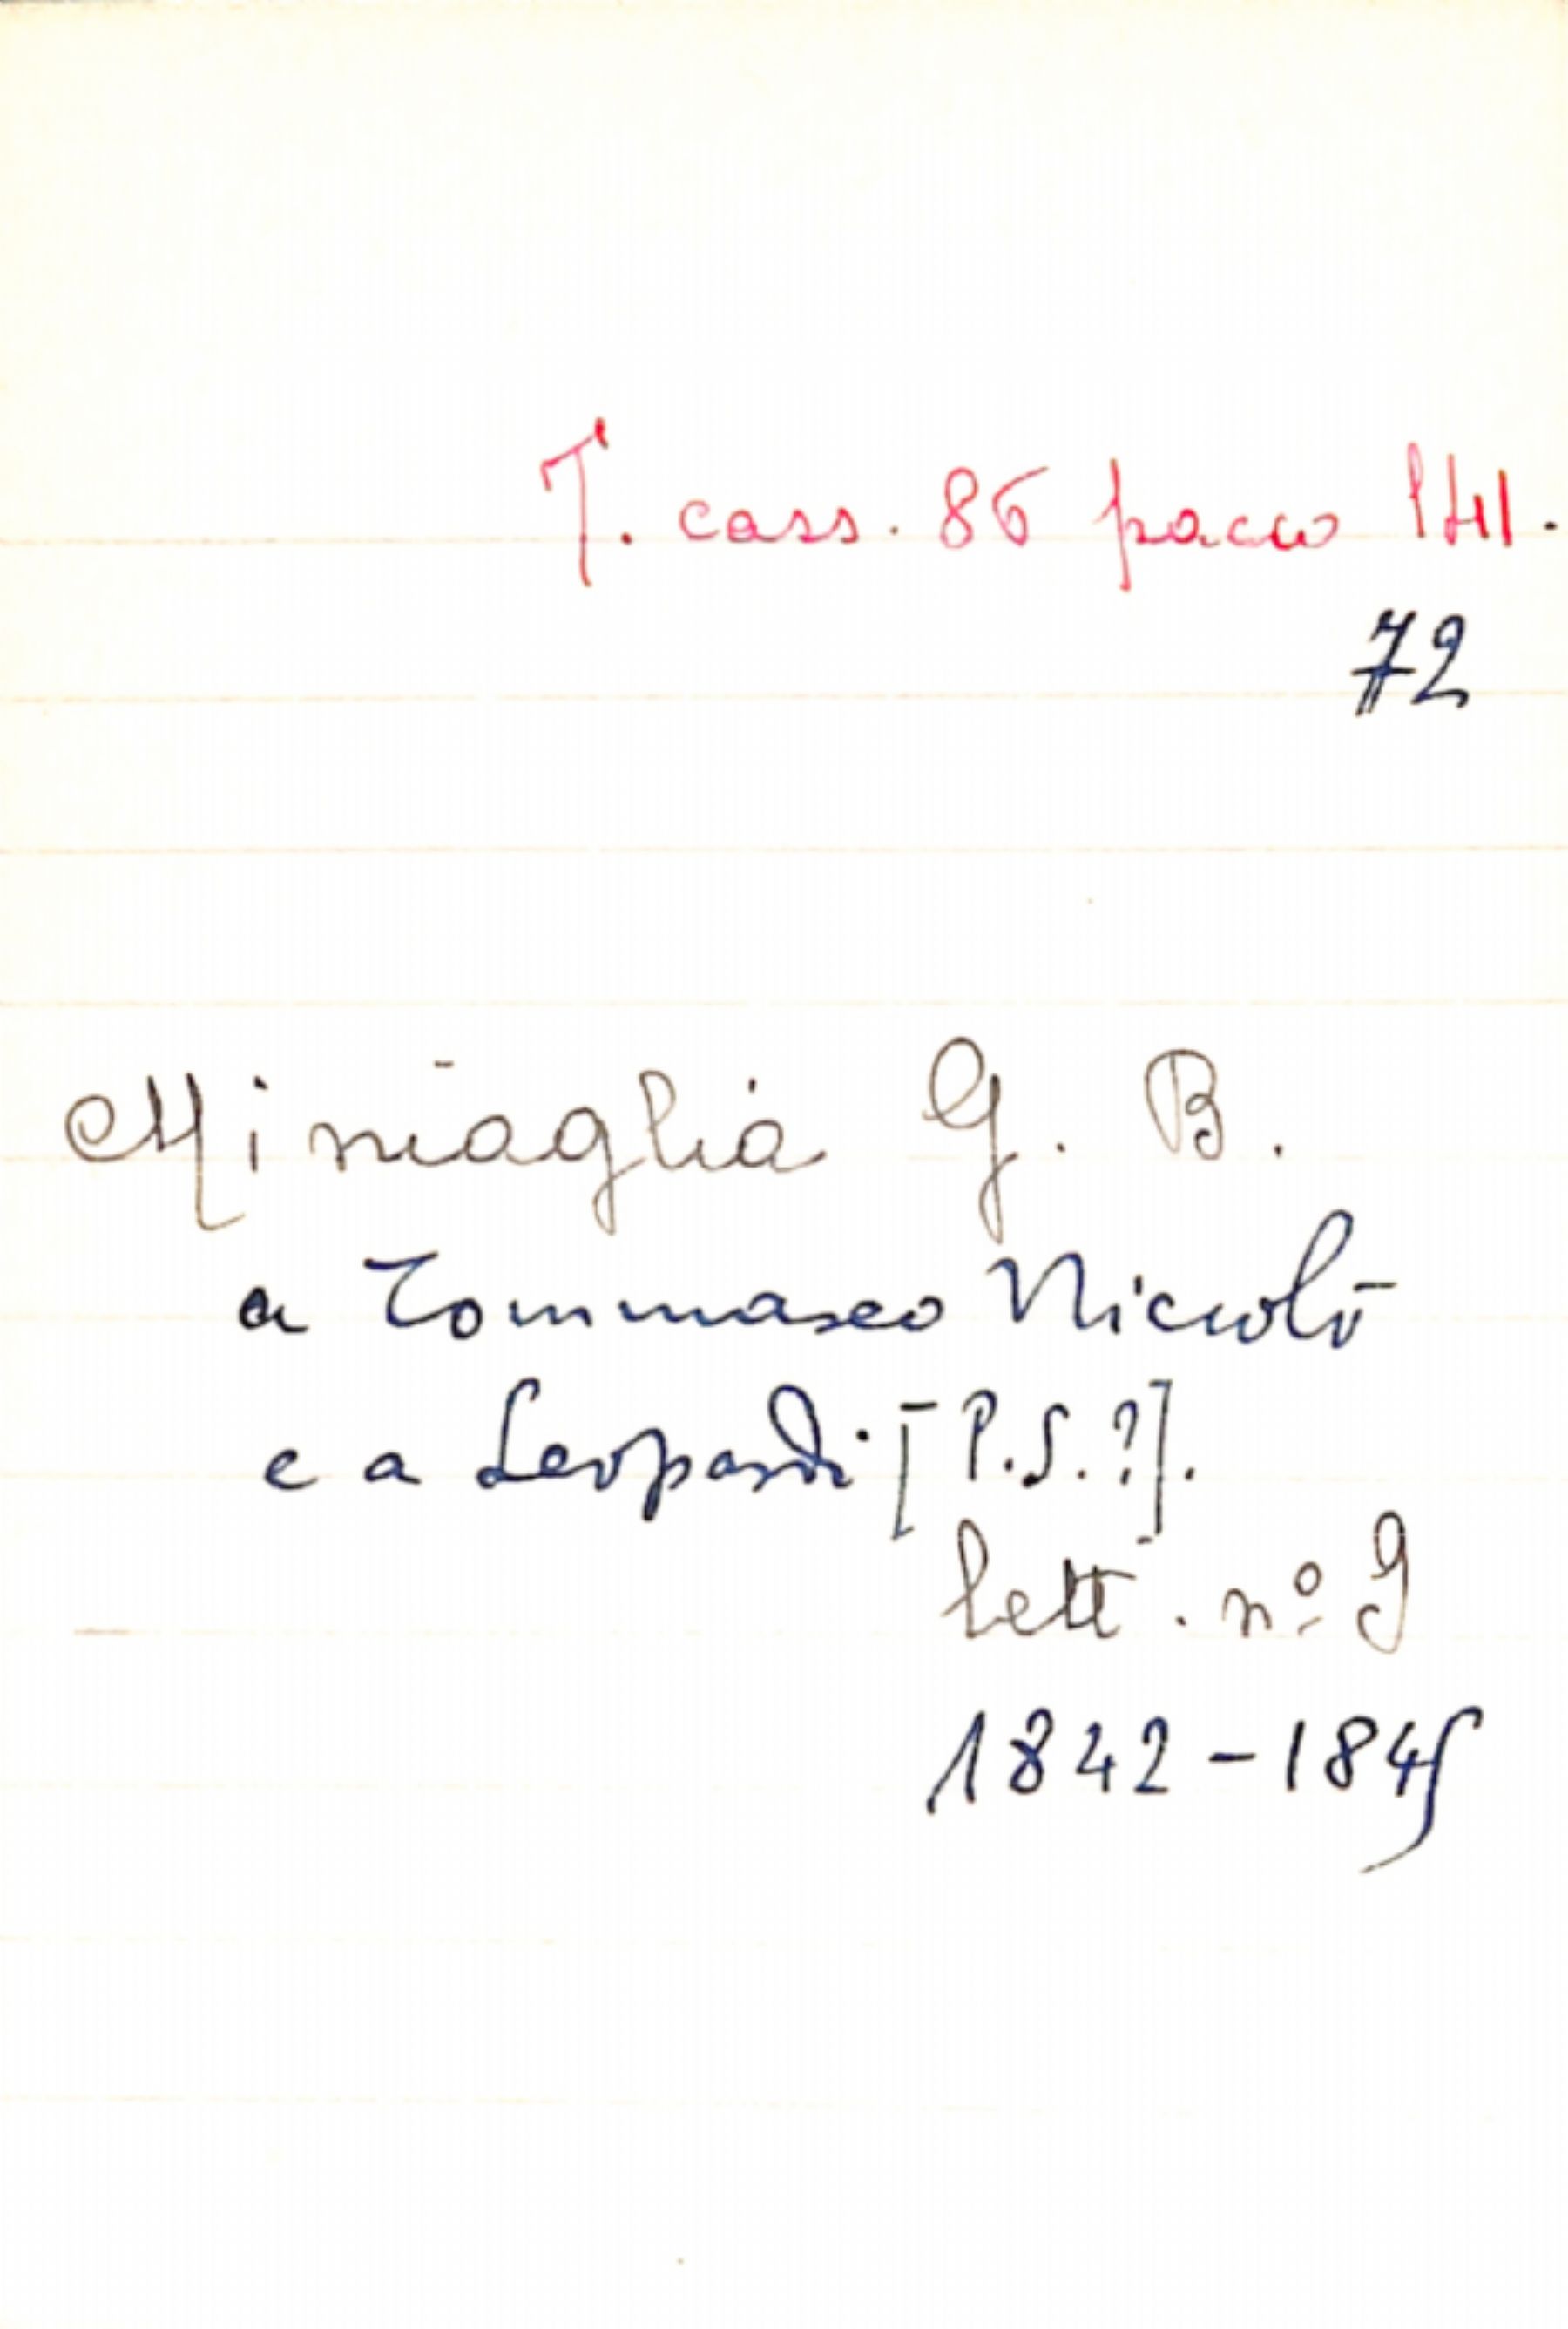 T. cass. 86 pacco 141.
72
Miniaglia G. B.
a Tommaseo Niccolò
e a Leopardi [P.S.?].
lett. nº 9
1842-1845